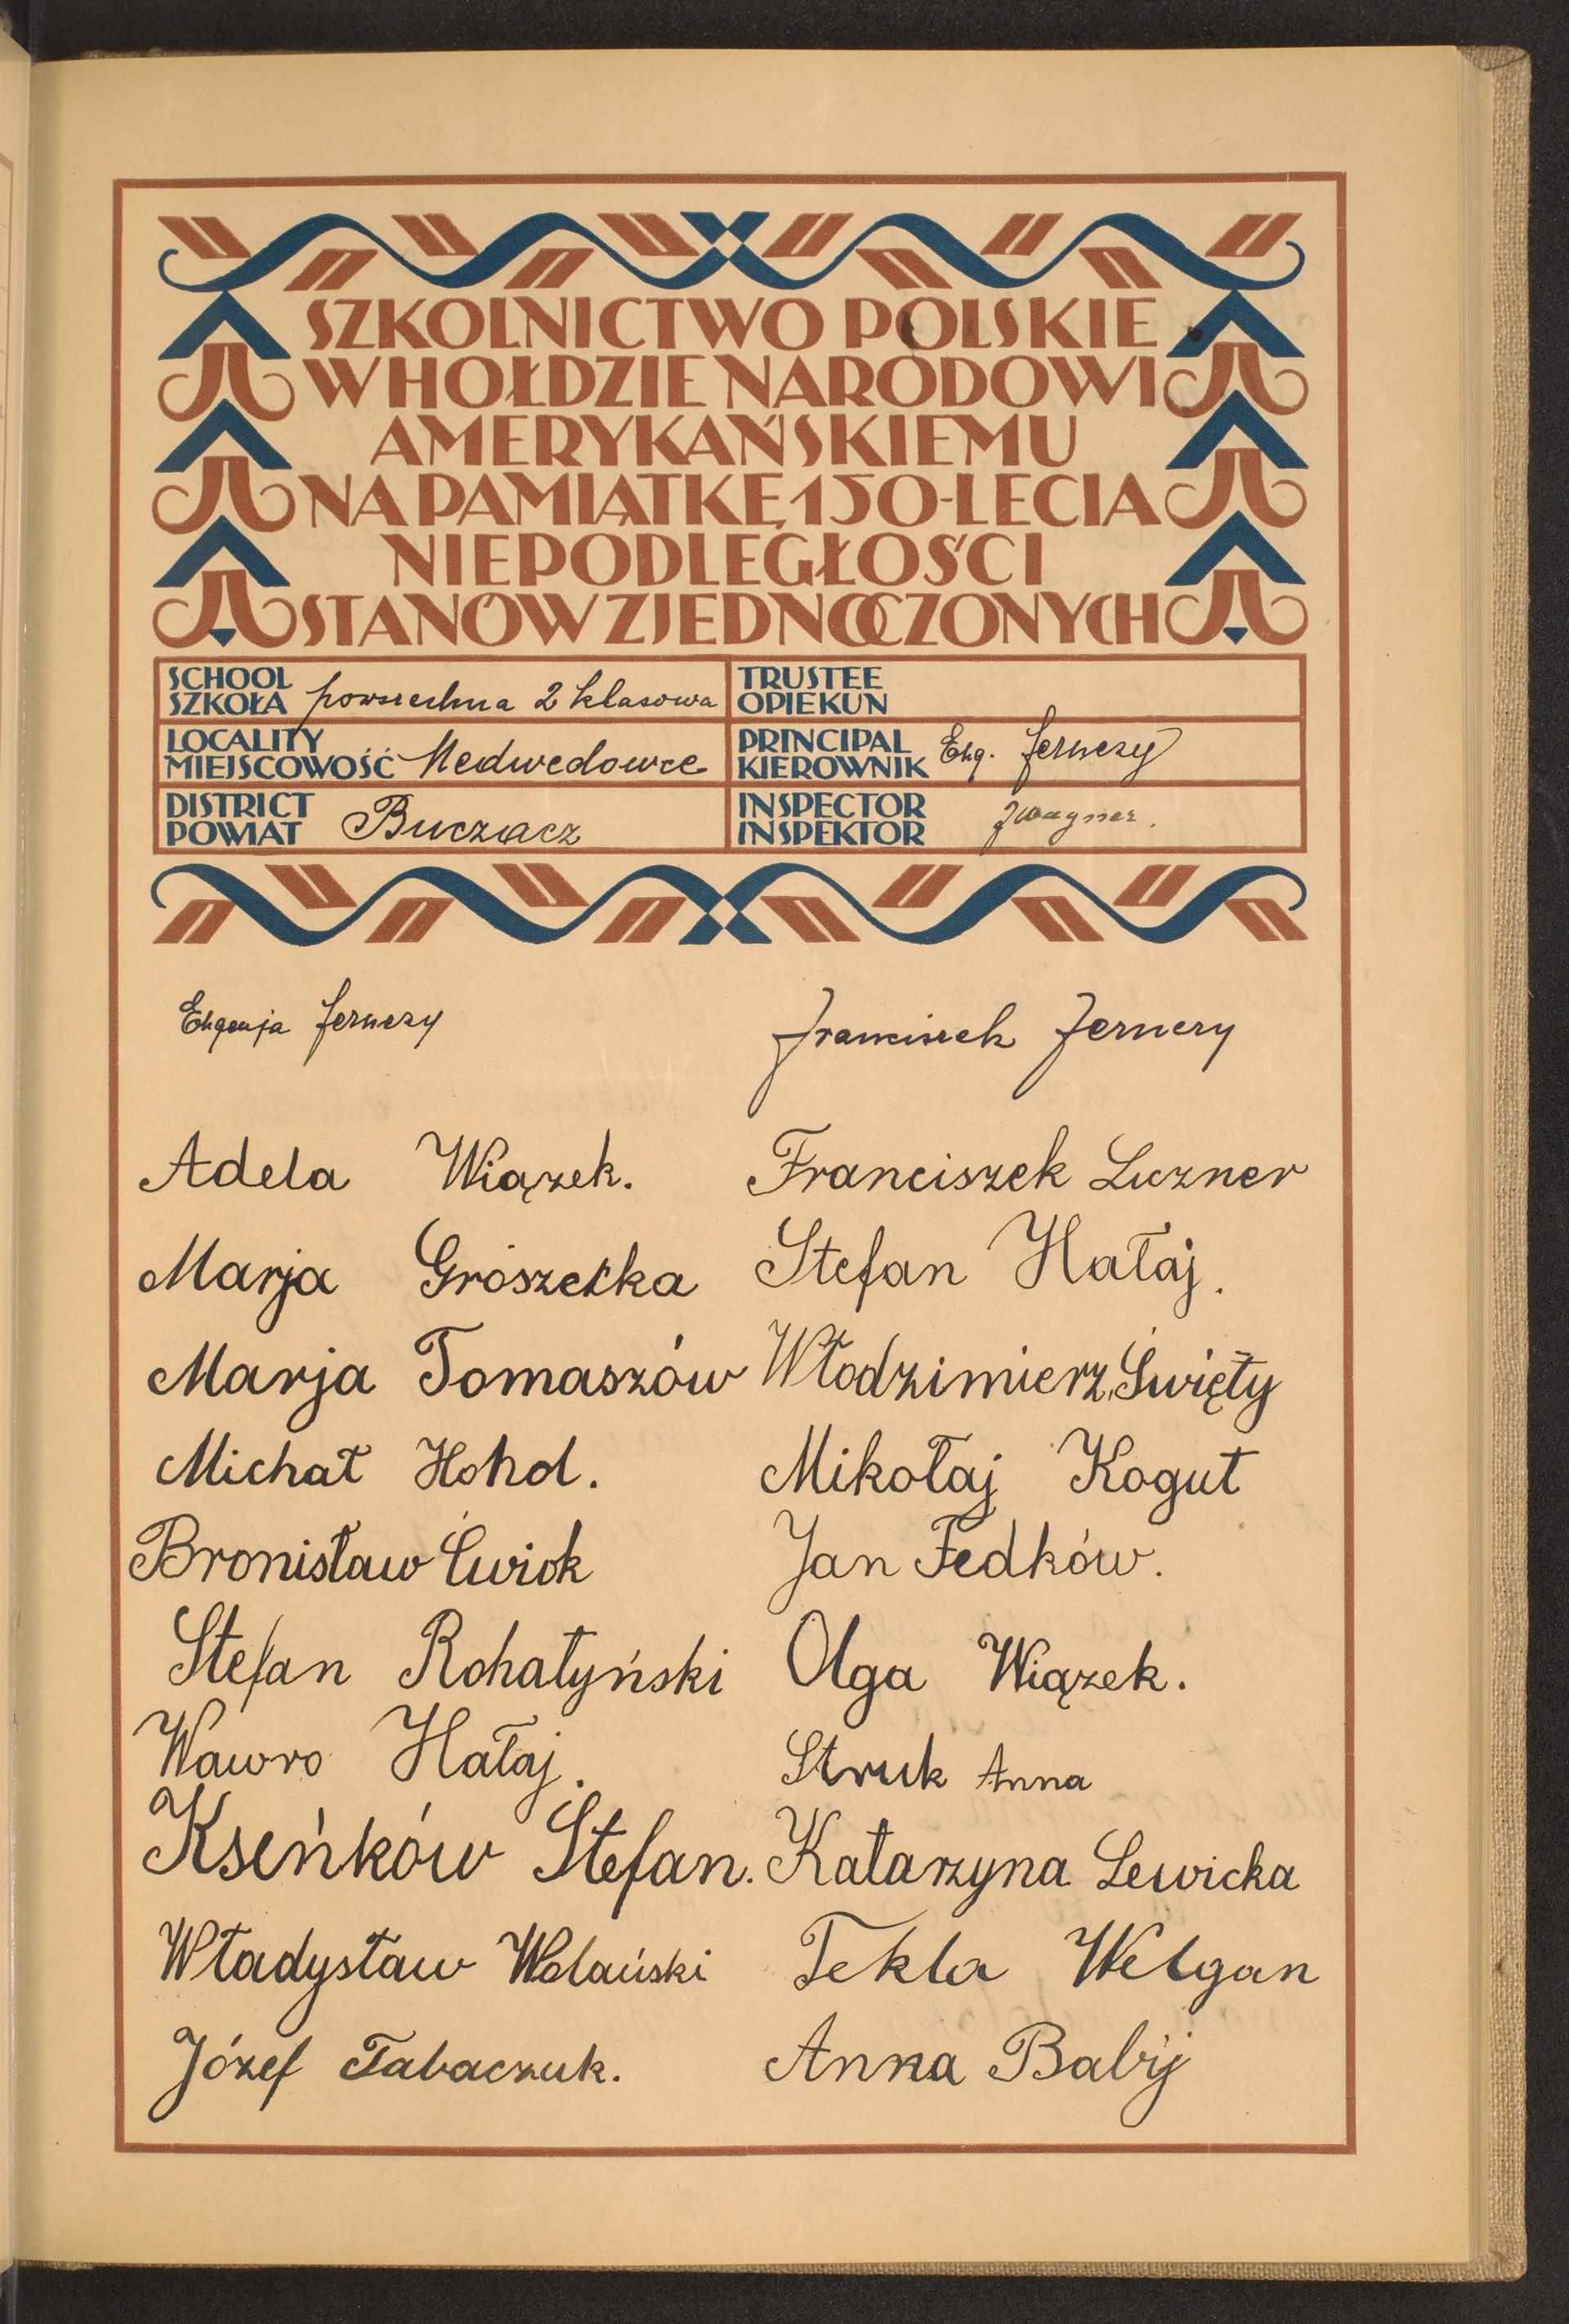 SZKOLNICTWO POLSKIE
W HOŁDZIE NARODOWI
AMERYKAŃSKIEMU
NA PAMIĄTKĘ 150-LECIA
NIEPODLEGŁOŚCI
STANÓW ZJEDNOCZONYCH
SCHOOL
SZKOŁA powszechna 2 klasowa
TRUSTEE
OPIEKUN
LOCALITY
MIEJSCOWOŚĆ Medwedowce
PRINCIPAL
KIEROWNIK Eug. Jernezy
DISTRICT
POWIAT Buczacz
INSPECTOR
INSPEKTOR JWagner.
Eugenja Jernezy
Franciszek Jernezy
Adela Wiązek. Franciszek Luzner
Marja Grószecka Stefan Hałaj.
Marja Tomaszów Włodzimierz Święty
Michał Hohol. Mikołaj Kogut
Bronisław Ćwiok Jan Fedków.
Stefan Rohatyński Olga Wiązek.
Wawro Hałaj. Struk Anna
Kseńków Stefan. Katarzyna Lewicka
Władysław Wolański Tekla Welgan
Józef Tabaczuk. Anna Babij